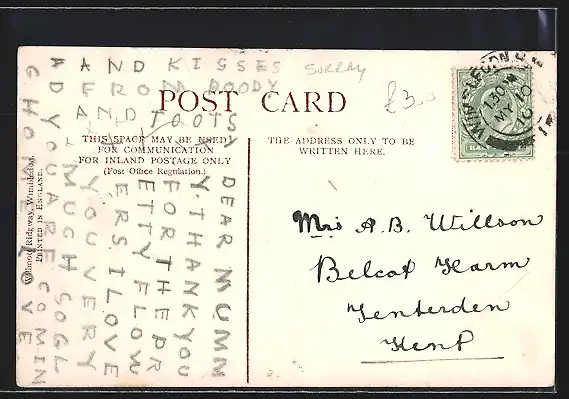 POST CARD
THIS SPACE MAY BE USED
FOR COMMUNICATION
FOR INLAND POSTAGE ONLY
(Post Office Regulation.)
THE ADDRESS ONLY TO BE
WRITTEN HERE.
SURRAY
£3.00
DEAR MUMM
Y. THANK YOU
FOR THE PR
ETTY FLOW
ERS. I LOVE
YOU VERY
MUCH SO GL
AD YOU ARE COMIN
G HOME LOVE
AND KISSES
FROM DOODY
AND TOOTSY
Mrs A. B. Willson
Belcot Farm
Tenterden
Kent
WIMBLEDON
1.30
MY 10
10
HAL
Ridgway, Wimbledon.
PRINTED IN ENGLAND.